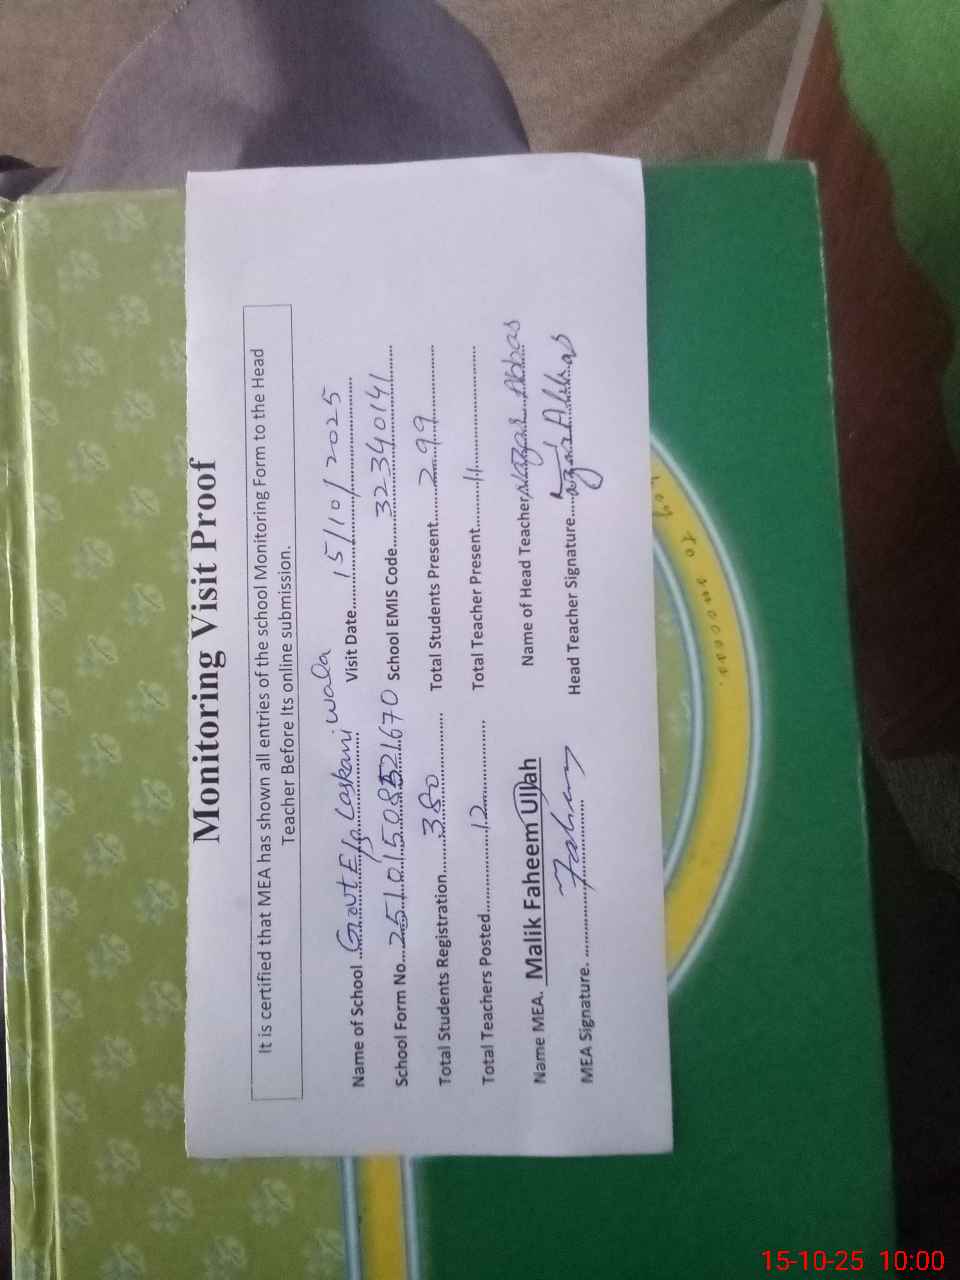 Monitoring Visit Proof
It is certified that MEA has shown all entries of the school Monitoring Form to the Head
Teacher Before Its online submission.
Name of School Govt E/s Laskani wala Visit Date 15/10/2025
School Form No. 2510150 521670 School EMIS Code 32340141
Total Students Registration 380 Total Students Present 299
Total Teachers Posted 12 Total Teacher Present 11
Name MEA. Malik Faheem Ullah Name of Head Teacher Nazar Abbas
MEA Signature. Faheem Head Teacher Signature Nazar Abbas
15-10-25 10:00